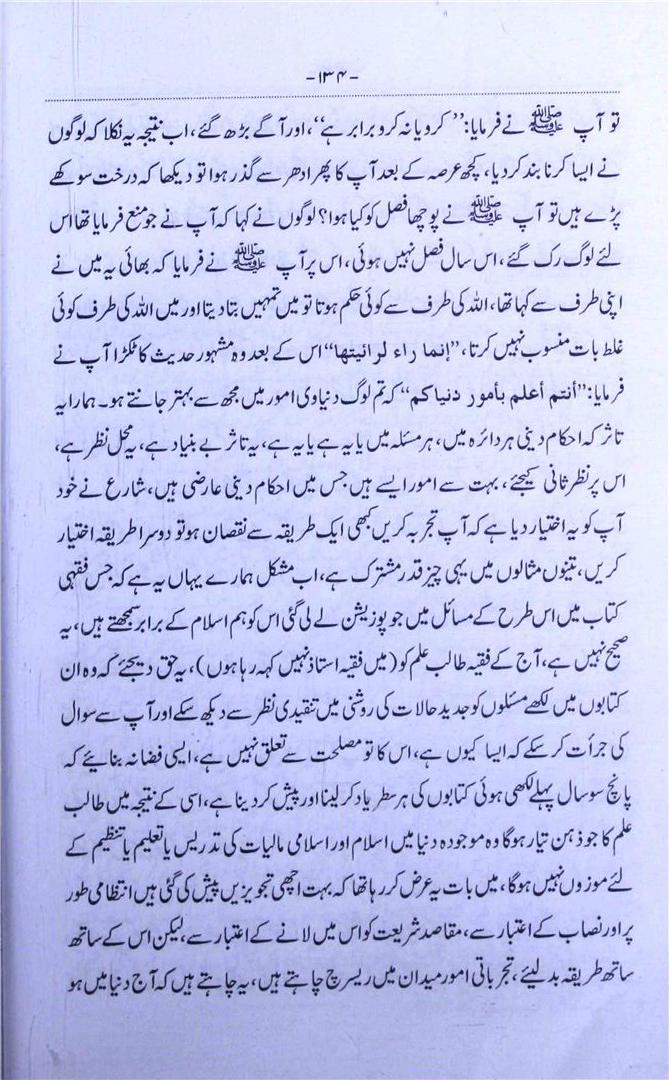 -۱۳۴-
تو آپ ﷺ نے فرمایا: ”کرو یا نہ کرو برابر ہے“، اور آگے بڑھ گئے، اب نتیجہ یہ نکلا کہ لوگوں
نے ایسا کرنا بند کر دیا، کچھ عرصہ کے بعد آپ کا پھر ادھر سے گذر ہوا تو دیکھا کہ درخت سوکھے
پڑے ہیں تو آپ ﷺ نے پوچھا فصل کو کیا ہوا؟ لوگوں نے کہا کہ آپ نے جو منع فرمایا تھا اس
لئے لوگ رک گئے، اس سال فصل نہیں ہوئی، اس پر آپ ﷺ نے فرمایا کہ بھائی یہ میں نے
اپنی طرف سے کہا تھا، اللہ کی طرف سے کوئی حکم ہوتا تو میں تمہیں بتا دیتا اور میں اللہ کی طرف کوئی
غلط بات منسوب نہیں کرتا، ”إنما راء لرائیتها“ اس کے بعد وہ مشہور حدیث کا ٹکڑا آپ نے
فرمایا: ”أنتم أعلم بأمور دنیاکم“ کہ تم لوگ دنیاوی امور میں مجھ سے بہتر جانتے ہو۔ ہمارا یہ
تاثر کہ احکام دینی ہر دائرہ میں، ہر مسئلہ میں یا یہ ہے یا یہ ہے، یہ تاثر بے بنیاد ہے، یہ محل نظر ہے،
اس پر نظر ثانی کیجئے، بہت سے امور ایسے ہیں جس میں احکام دینی عارضی ہیں، شارع نے خود
آپ کو یہ اختیار دیا ہے کہ آپ تجربہ کریں کبھی ایک طریقہ سے نقصان ہو تو دوسرا طریقہ اختیار
کریں، تینوں مثالوں میں یہی چیز قدر مشترک ہے، اب مشکل ہمارے یہاں یہ ہے کہ جس فقہی
کتاب میں اس طرح کے مسائل میں جو پوزیشن لے لی گئی اس کو ہم اسلام کے برابر سمجھتے ہیں، یہ
صحیح نہیں ہے، آج کے فقیہ طالب علم کو (میں فقیہ استاذ نہیں کہہ رہا ہوں)، یہ حق دیجئے کہ وہ ان
کتابوں میں لکھے مسئلوں کو جدید حالات کی روشنی میں تنقیدی نظر سے دیکھ سکے اور آپ سے سوال
کی جرأت کر سکے کہ ایسا کیوں ہے، اس کا تو مصلحت سے تعلق نہیں ہے، ایسی فضا نہ بنائیے کہ
پانچ سو سال پہلے لکھی ہوئی کتابوں کی ہر سطر یاد کر لینا اور پیش کر دینا ہے، اسی کے نتیجہ میں طالب
علم کا جو ذہن تیار ہوگا وہ موجودہ دنیا میں اسلام اور اسلامی مالیات کی تدریس یا تعلیم یا تنظیم کے
لئے موزوں نہیں ہوگا، میں بات یہ عرض کر رہا تھا کہ بہت اچھی تجویزیں پیش کی گئی ہیں انتظامی طور
پر اور نصاب کے اعتبار سے، مقاصد شریعت کو اس میں لانے کے اعتبار سے، لیکن اس کے ساتھ
ساتھ طریقہ بدلیئے، تجرباتی امور میدان میں ریسرچ چاہتے ہیں، یہ چاہتے ہیں کہ آج دنیا میں ہو